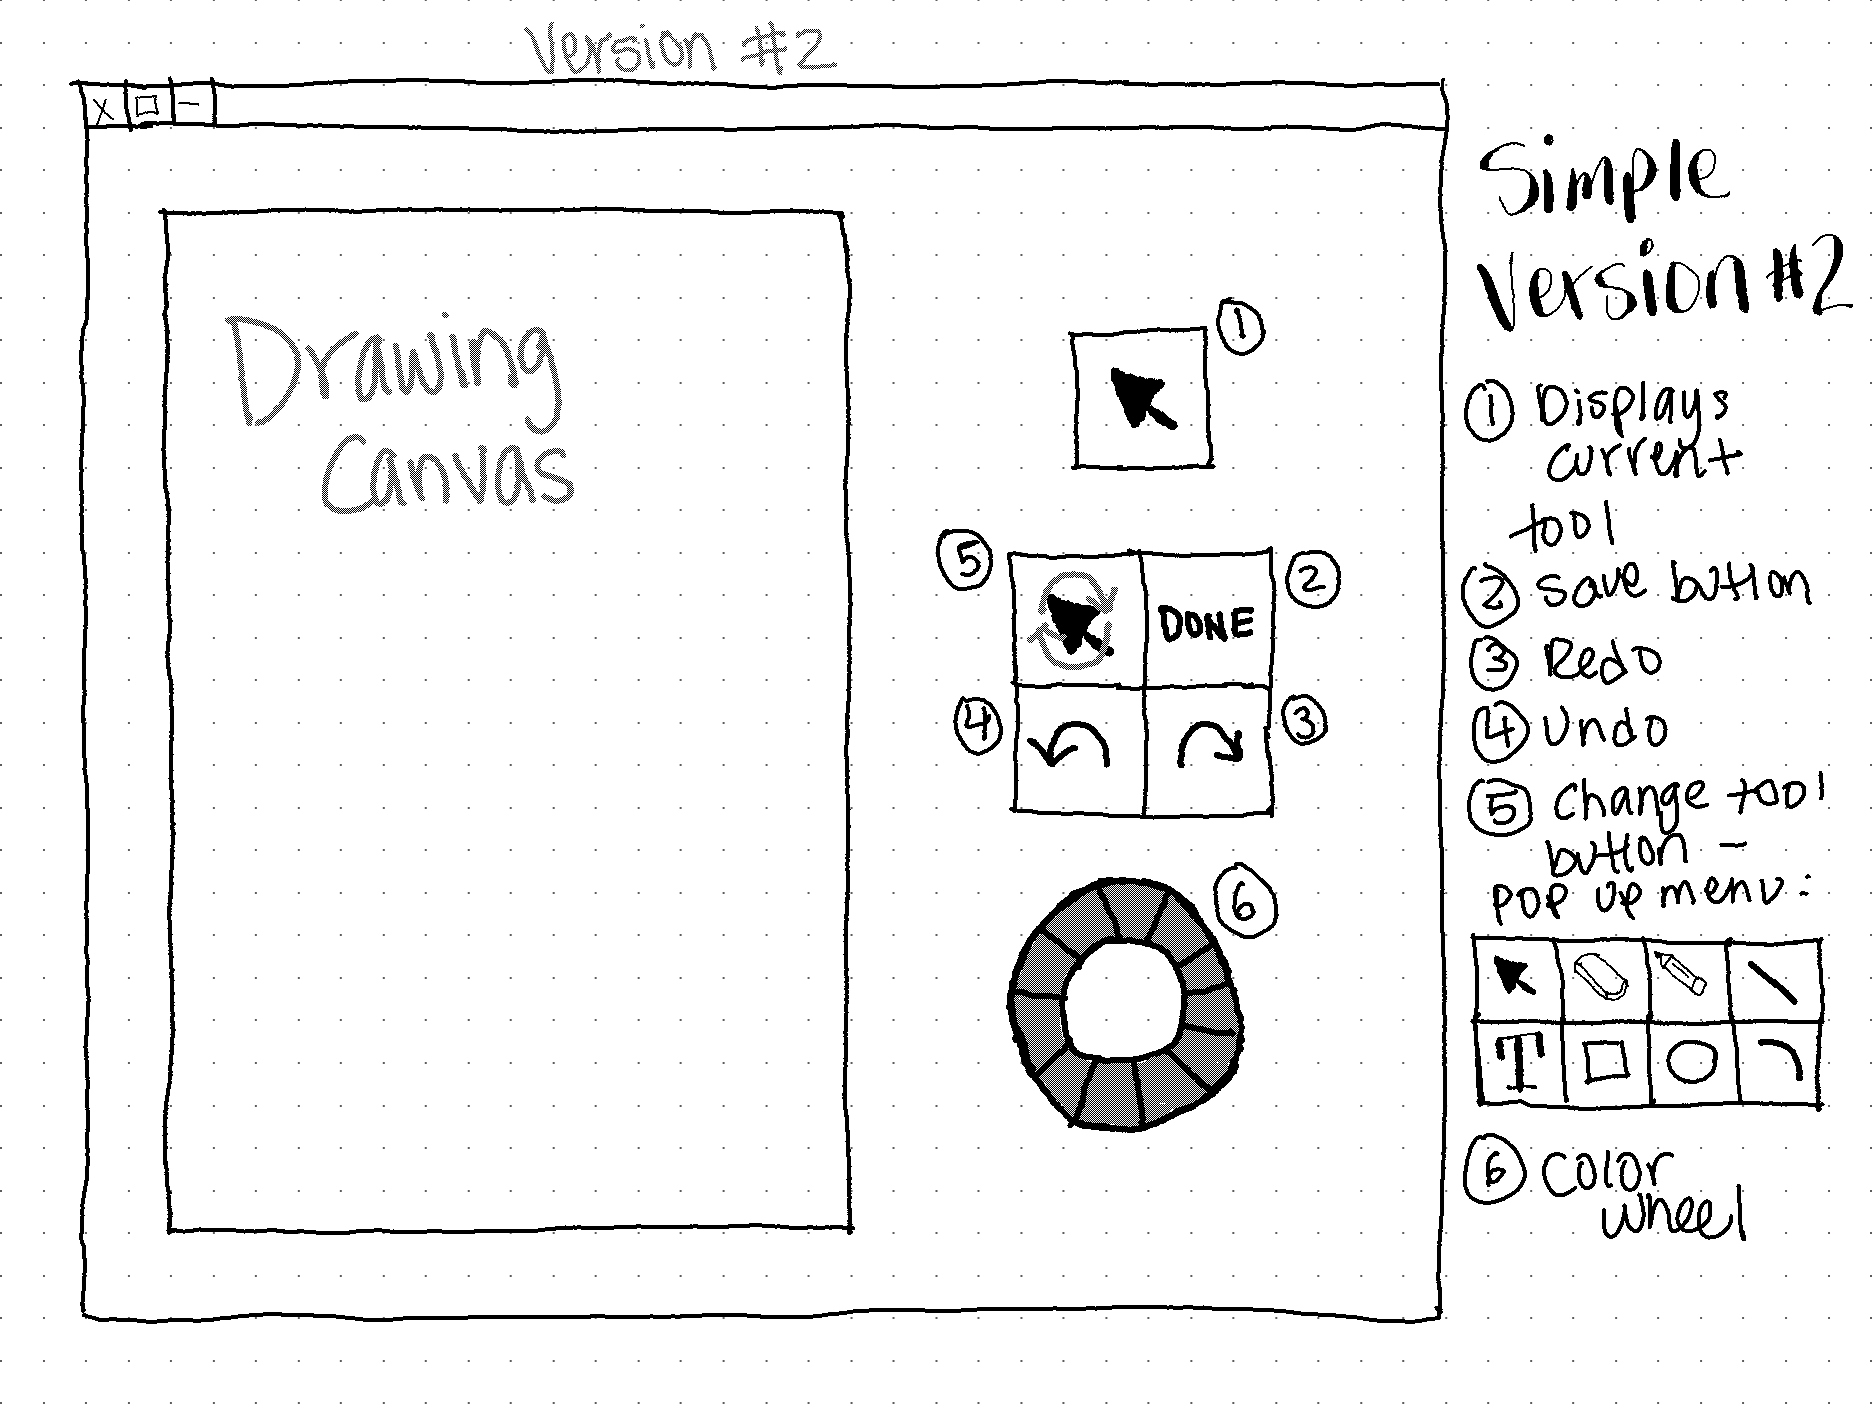 Version #2
X
Drawing
Canvas
1
5
DONE
2
4
3
6
Simple
Version #2
1 Displays
current
tool
2 Save button
3 Redo
4 Undo
5 Change tool
button -
POP UP menu:
T
6 Color
wheel